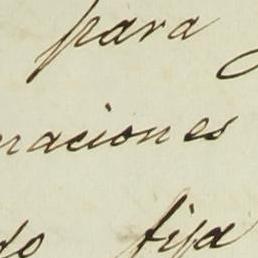 para
naciones
do fija